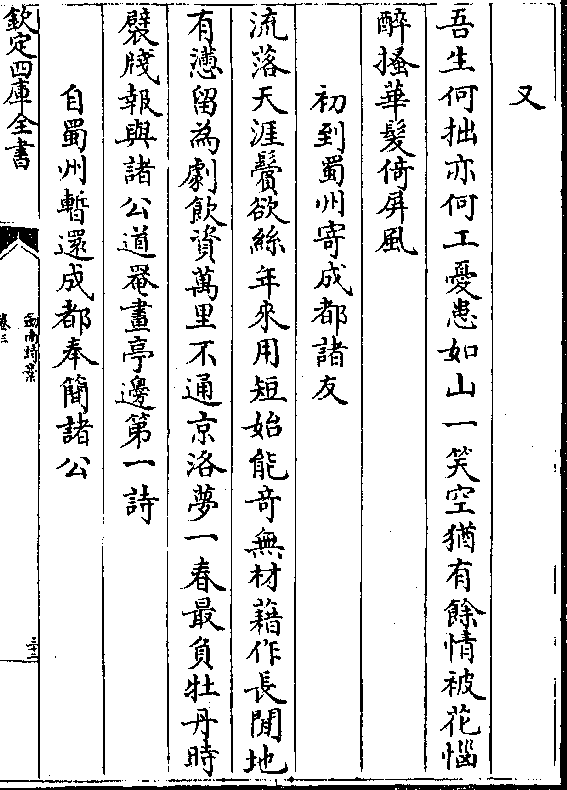 又
吾生何拙亦何工憂患如山一笑空猶有餘情被花惱
醉搔華髮倚屏風
初到蜀州寄成都諸友
流落天涯鬢欲絲年來用短始能奇無材藉作長閒地
有懑留為劇飲資萬里不通京洛夢一春最負牡丹時
襞牋報與諸公道罨畫亭邊第一詩
自蜀州暫還成都奉簡諸公
欽定四庫全書
卷三